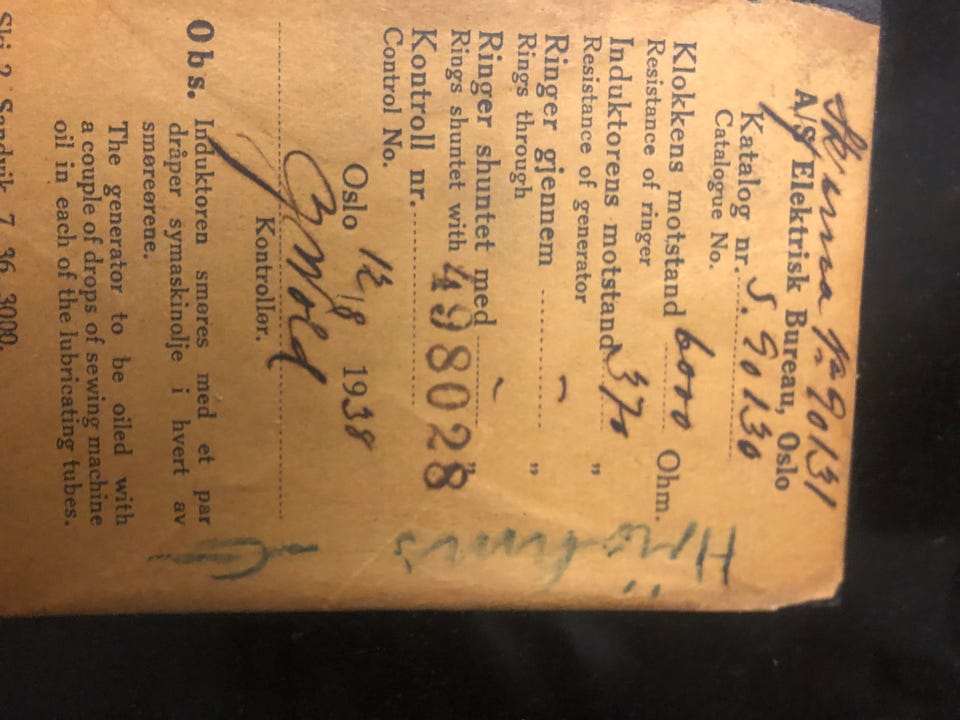 A/S Elektrisk Bureau, Oslo
Katalog nr. S. 90130
Catalogue No.
Klokkens motstand 6000 Ohm.
Resistance of ringer
Induktorens motstand 370 "
Resistance of generator
Ringer gjennem "
Rings through
Ringer shuntet med "
Rings shuntet with
Kontroll nr. 498028
Control No.
Oslo 12/8 1938
Kontrollør.
Obs. Induktoren smøres med et par
dråper symaskinolje i hvert av
smørerørene.
The generator to be oiled with
a couple of drops of sewing machine
oil in each of the lubricating tubes.
7. 36. 3000.